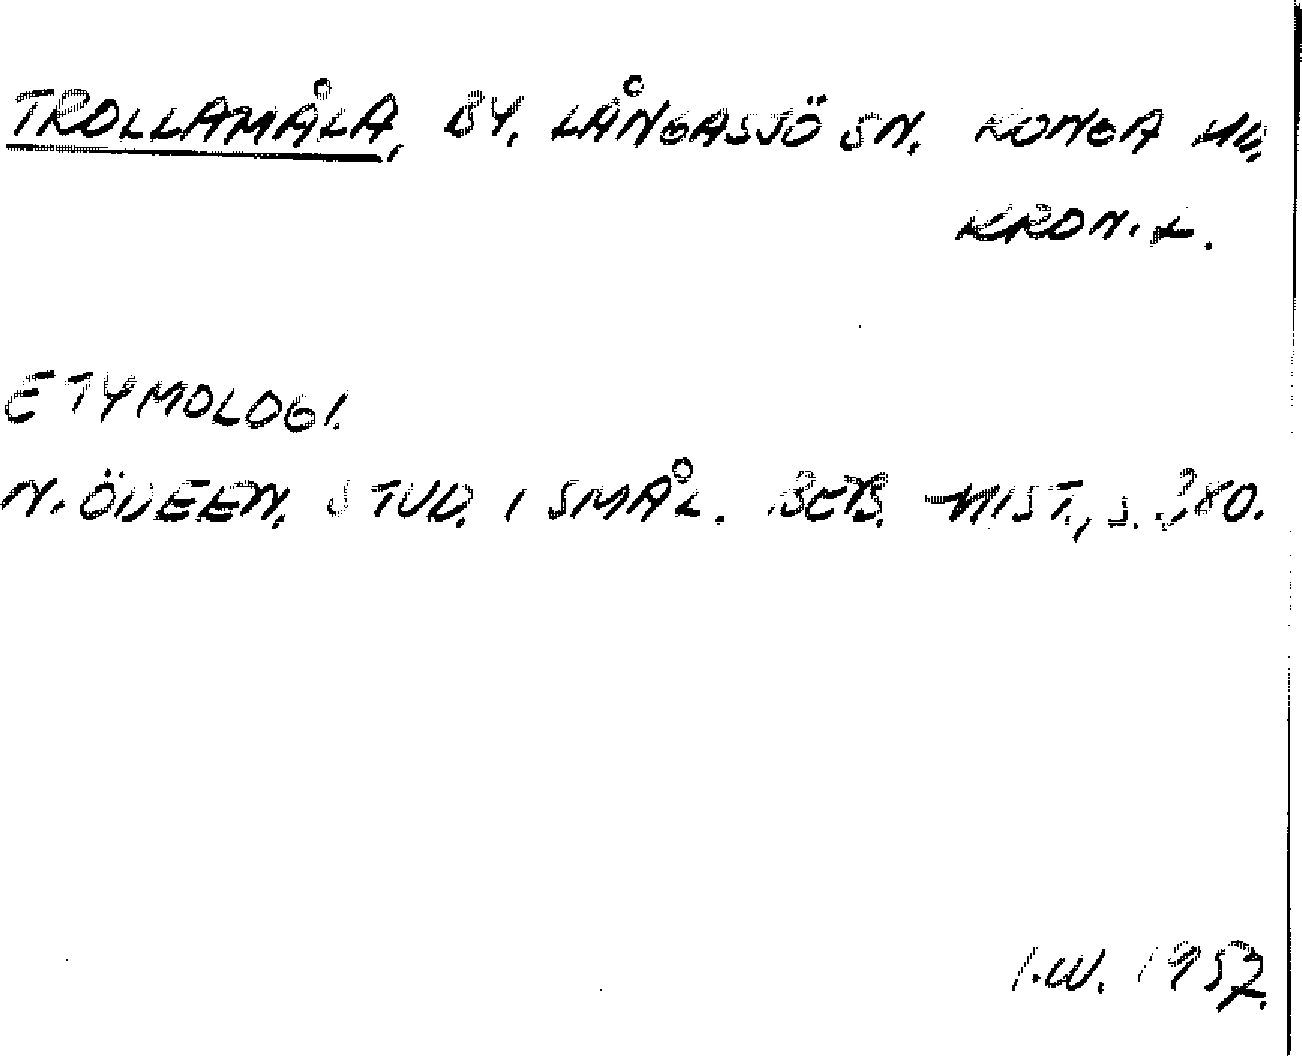 TROLLAMÅLA, BY. LÅNGASJÖ SN. KONGA HD.
KRON. L.
ETYMOLOGI.
N. ÖDEEN. STUD. I SMÅL. BEB. HIST., S.
I.W. 1957.